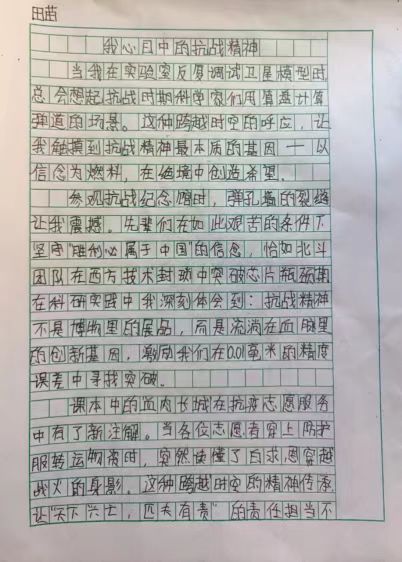 田苗
我心目中的抗战精神
当我在实验室反复调试卫星模型时
总会想起抗战时期科学家们用算盘计算
弹道的场景。这种跨越时空的呼应，让
我触摸到抗战精神最本质的基因——以
信念为燃料，在绝境中创造希望。
参观抗战纪念馆时，弹孔墙的裂缝
让我震撼。先辈们在如此艰苦的条件下
坚守"胜利必属于中国"的信念，恰如北斗
团队在西方技术封锁中突破芯片瓶颈期
在科研实践中我深刻体会到：抗战精神
不是博物里的展品，而是流淌在血脉里
的创新基因，激励我们在0.01毫米的精度
误差中寻找突破。
课本中的血肉长城在抗疫志愿服务
中有了新注解。当各位志愿者穿上防护
服转运物资时，突然读懂了白求恩穿越
战火的身影。这种跨越时空的精神传承
让"天下兴亡，匹夫有责"的责任担当不